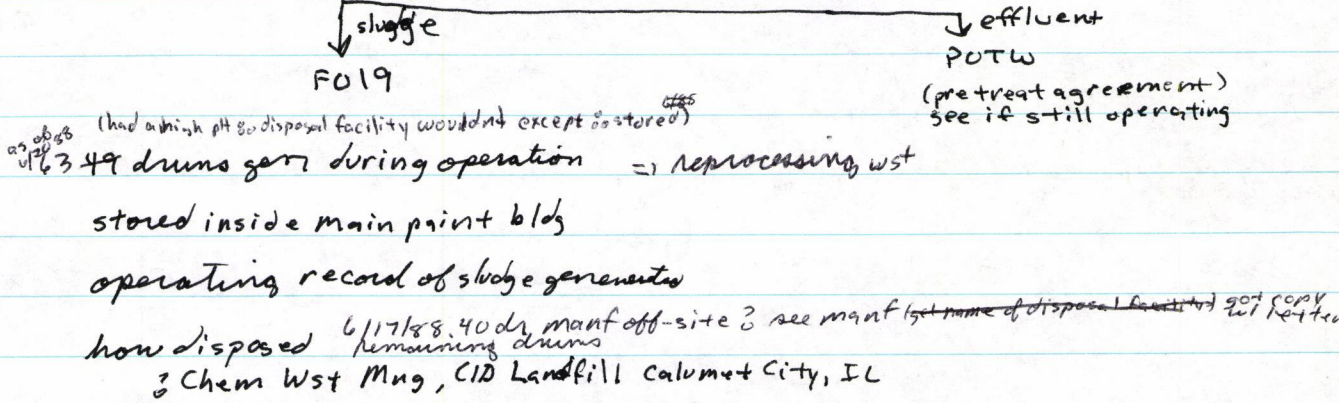 sludge
effluent
F019
POTW
(pretreat agreement)
see if still operating
(had a high pH so disposal facility wouldnt except so stored)
as of
49 drums gen during operation => reprocessing wst
stored inside main paint bldg
operating record of sludge generated
how disposed 6/17/88 40 dr manf off-site ? see manf (get name of disposal facility) got copy
remaining drums
? Chem Wst Mng, CID Landfill Calumet City, IL